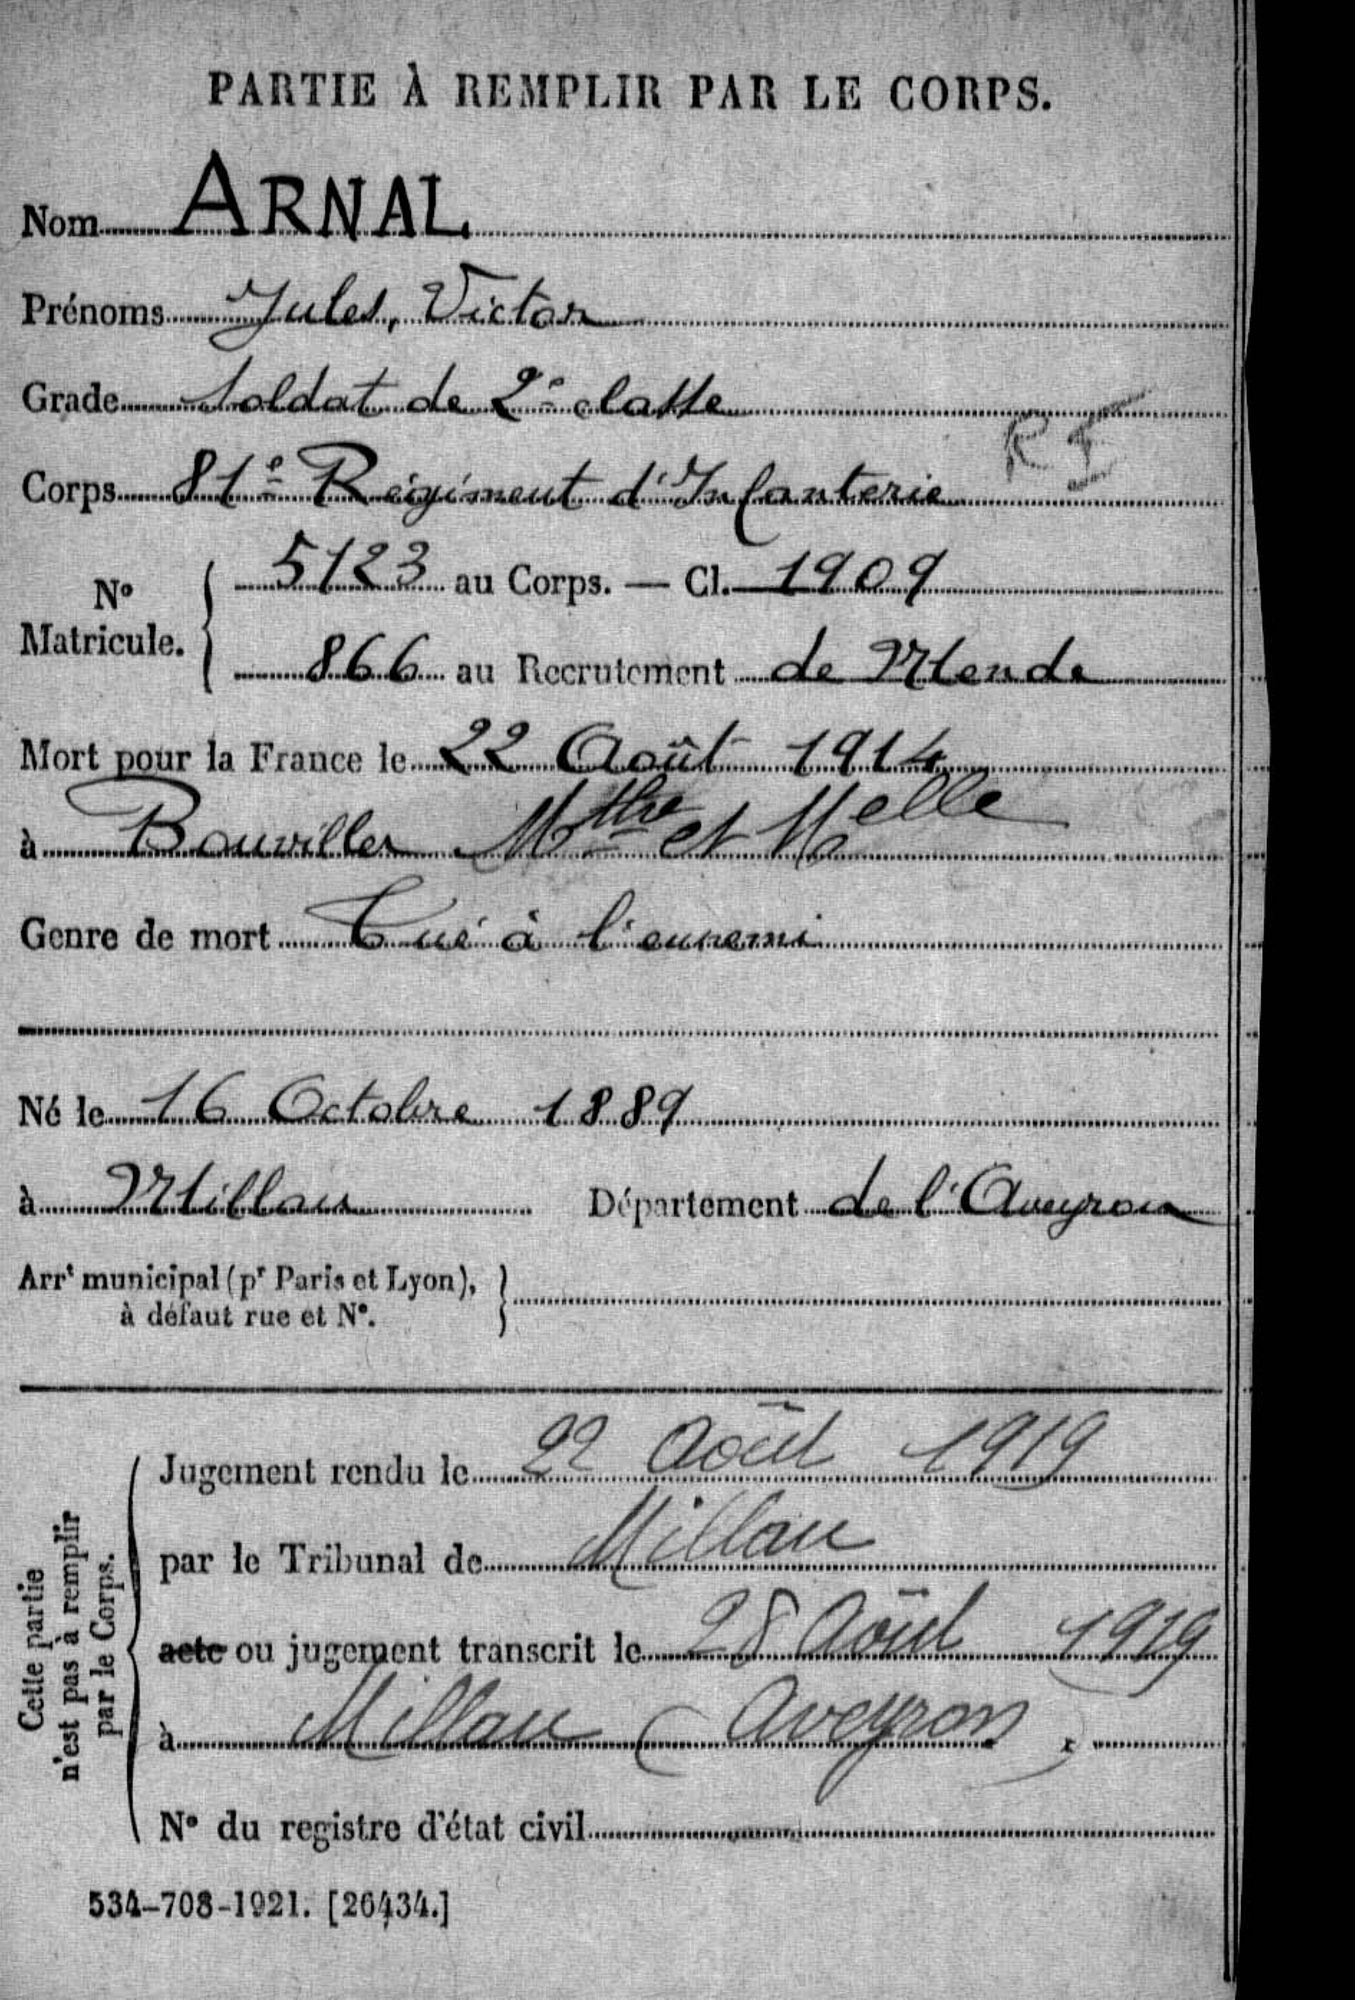 PARTIE À REMPLIR PAR LE CORPS.
Nom ARNAL
Prénoms Jules, Victor
Grade Soldat de 2e classe
RI
Corps 81e Régiment d'Infanterie
No Matricule. { 5123 au Corps. — Cl. 1909
866 au Recrutement de Mende
Mort pour la France le 22 Août 1914
à Bouviller Mthe et Melle
Genre de mort Tué à l'ennemi
Né le 16 Octobre 1889
à Millau Département de l'Aveyron
Arrt municipal (pr Paris et Lyon),
à défaut rue et No.
Cette partie
n'est pas à remplir
par le Corps.
Jugement rendu le 22 Août 1919
par le Tribunal de Millau
acte ou jugement transcrit le 28 Août 1919
à Millau (Aveyron).
No du registre d'état civil
534-708-1921. [26434.]